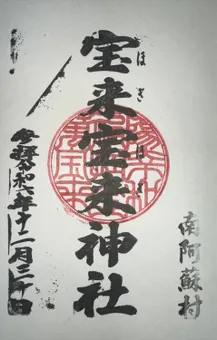 宝来宝来神社
ほぎ
ほぎ
南阿蘇村
令和六年十二月三十日